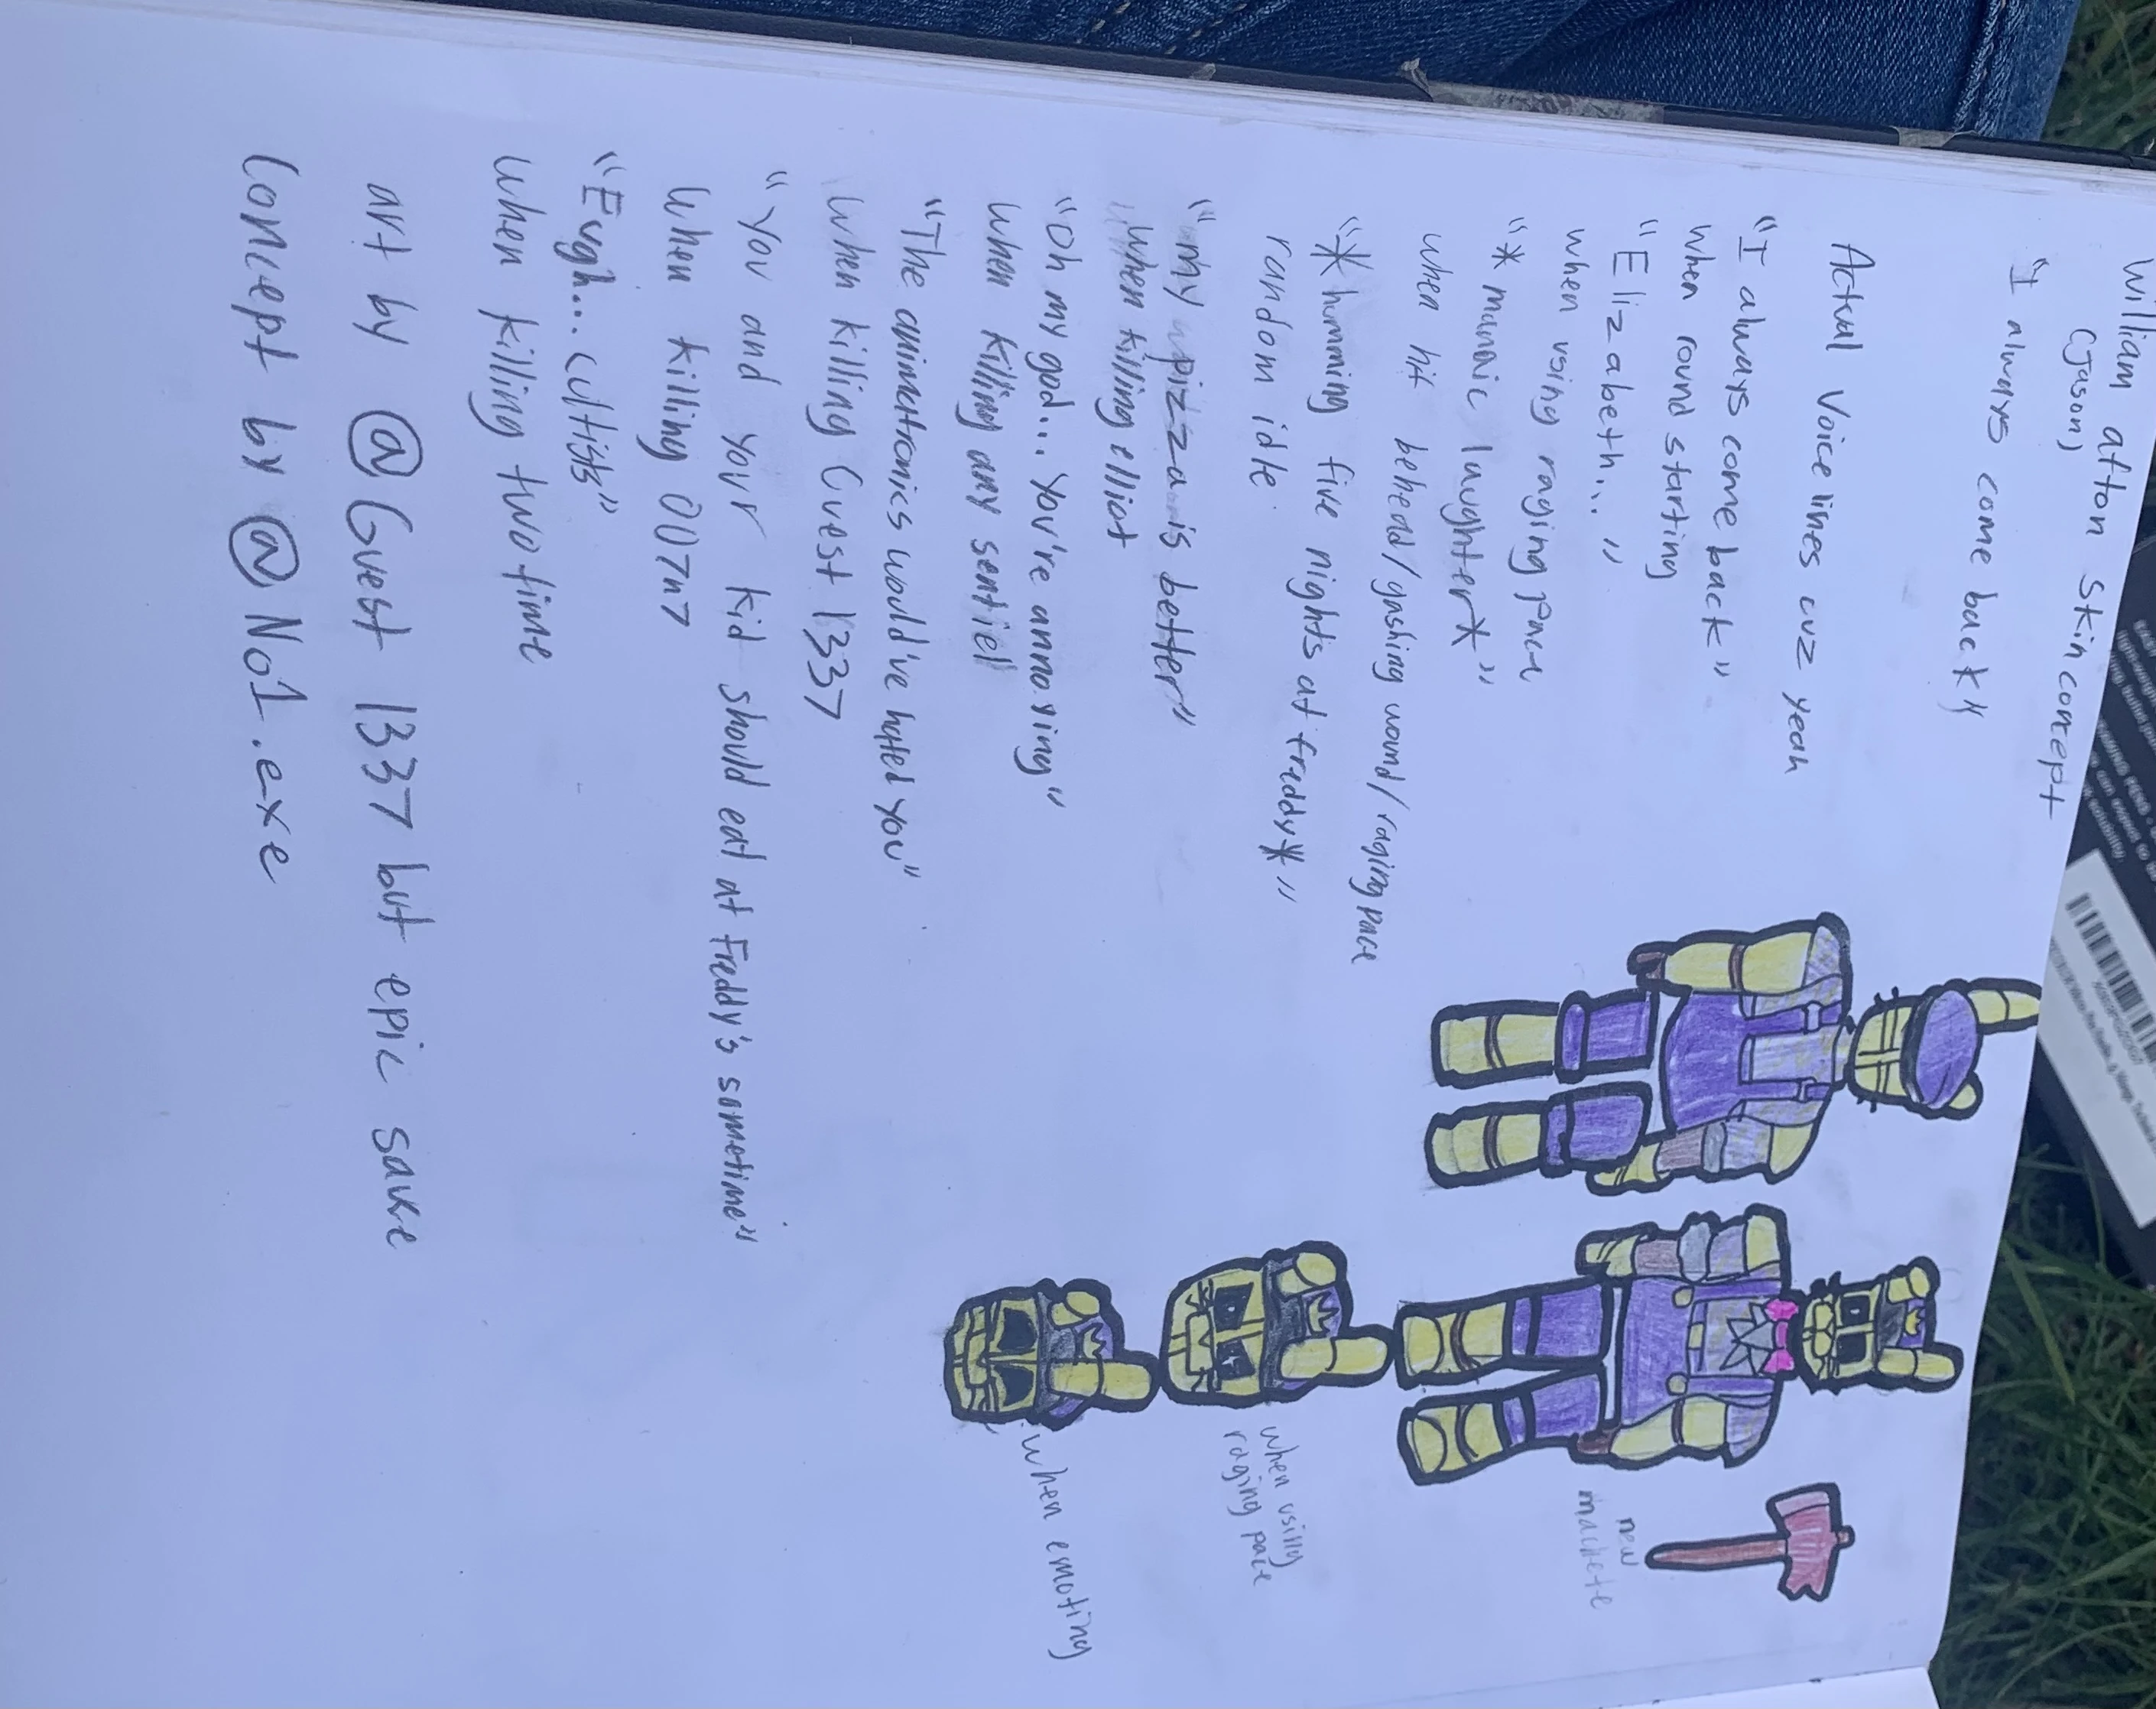 William afton skin concept
(Jason)
"I always come back"
Actual Voicelines cuz yeah
"I always come back"
when round starting
"Elizabeth..."
when using raging pace
"*manaic laughter*"
when hit behead/gashing wound/raging pace
"*humming five nights at freddy*"
random idle
"my pizza is better"
when killing elliot
"Oh my god... You're annoying"
when killing any sentiel
"The animatronics would've hated you"
when killing Guest 1337
"You and your kid should eat at Freddy's sometime"
when killing 007n7
"Eugh... cultists"
when killing two time
art by @Guest 1337 but epic sauce
concept by @No1.exe
new
machete
when using
raging pace
when emoting